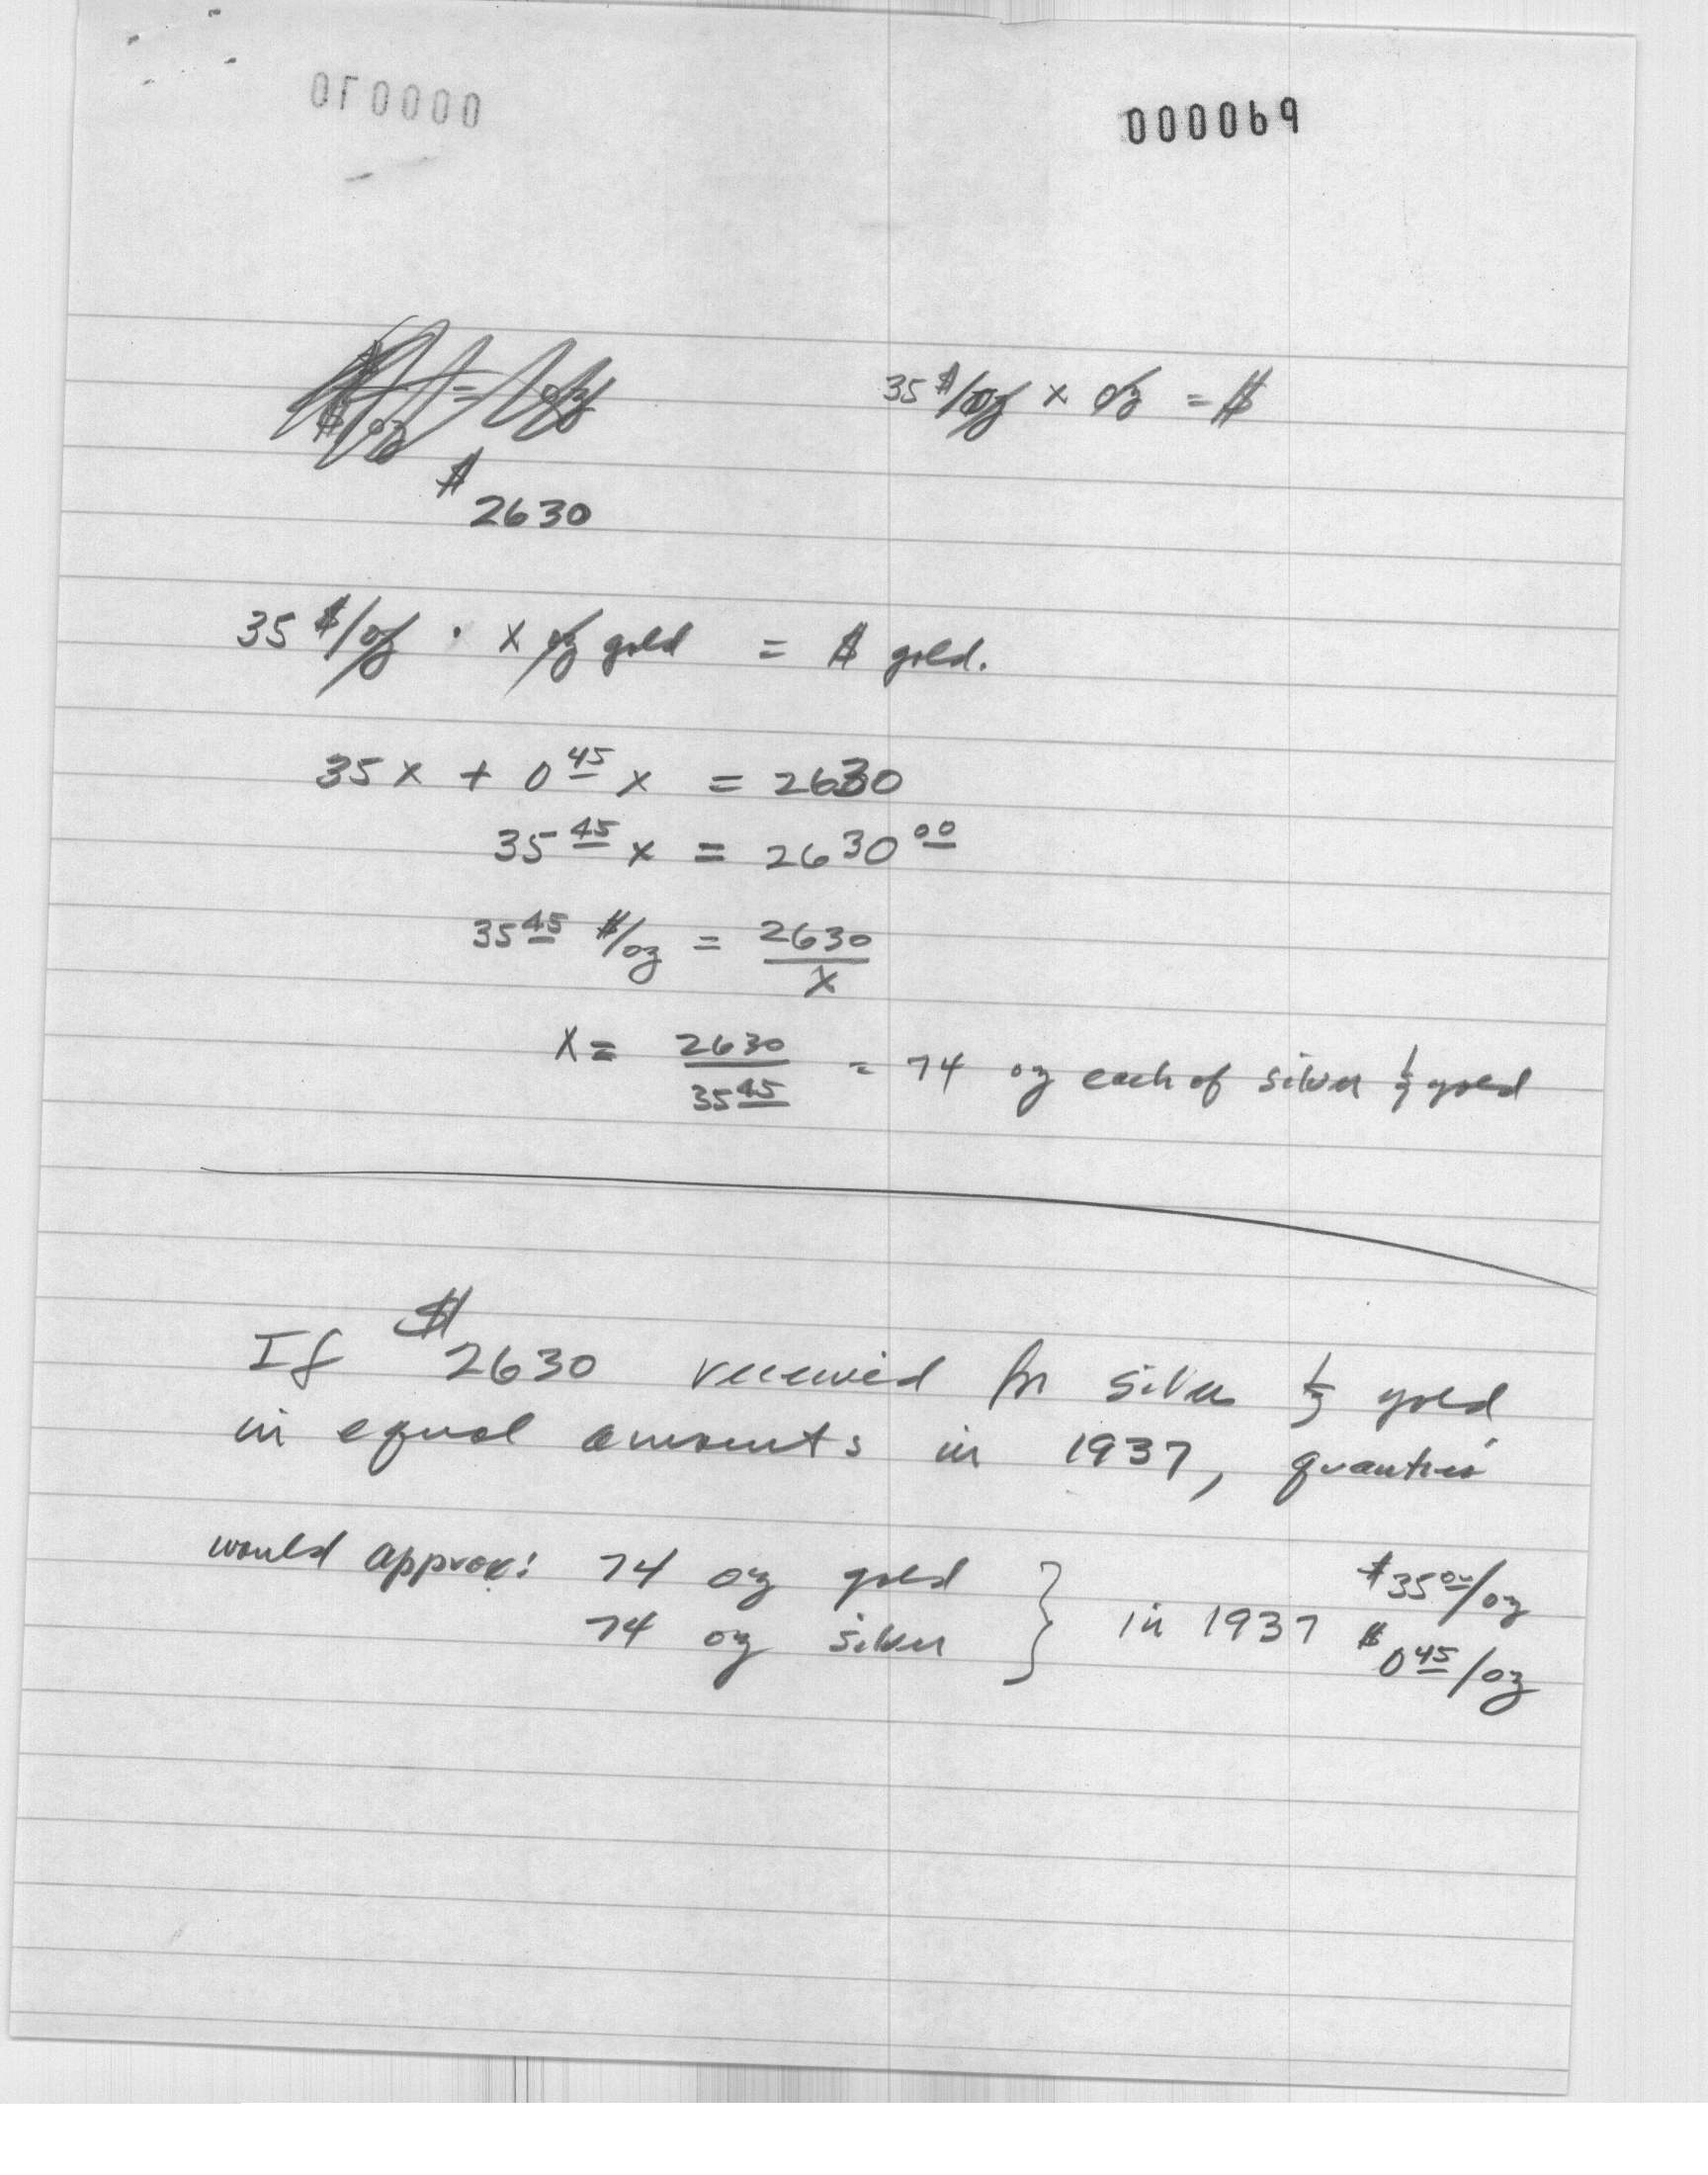 000069
35 $/oz x oz = $
$ 2630
35 $/oz · x oz gold = $ gold.
35 x + 0 45 x = 2630
35 45 x = 2630 00
35 45 $/oz = 2630 / x
x = 2630 / 35 45 = 74 oz each of silver & gold
If $2630 received for silver & gold
in equal amounts in 1937, quantities
would approx: 74 oz gold } in 1937 $35 00/oz
74 oz silver $0 45/oz